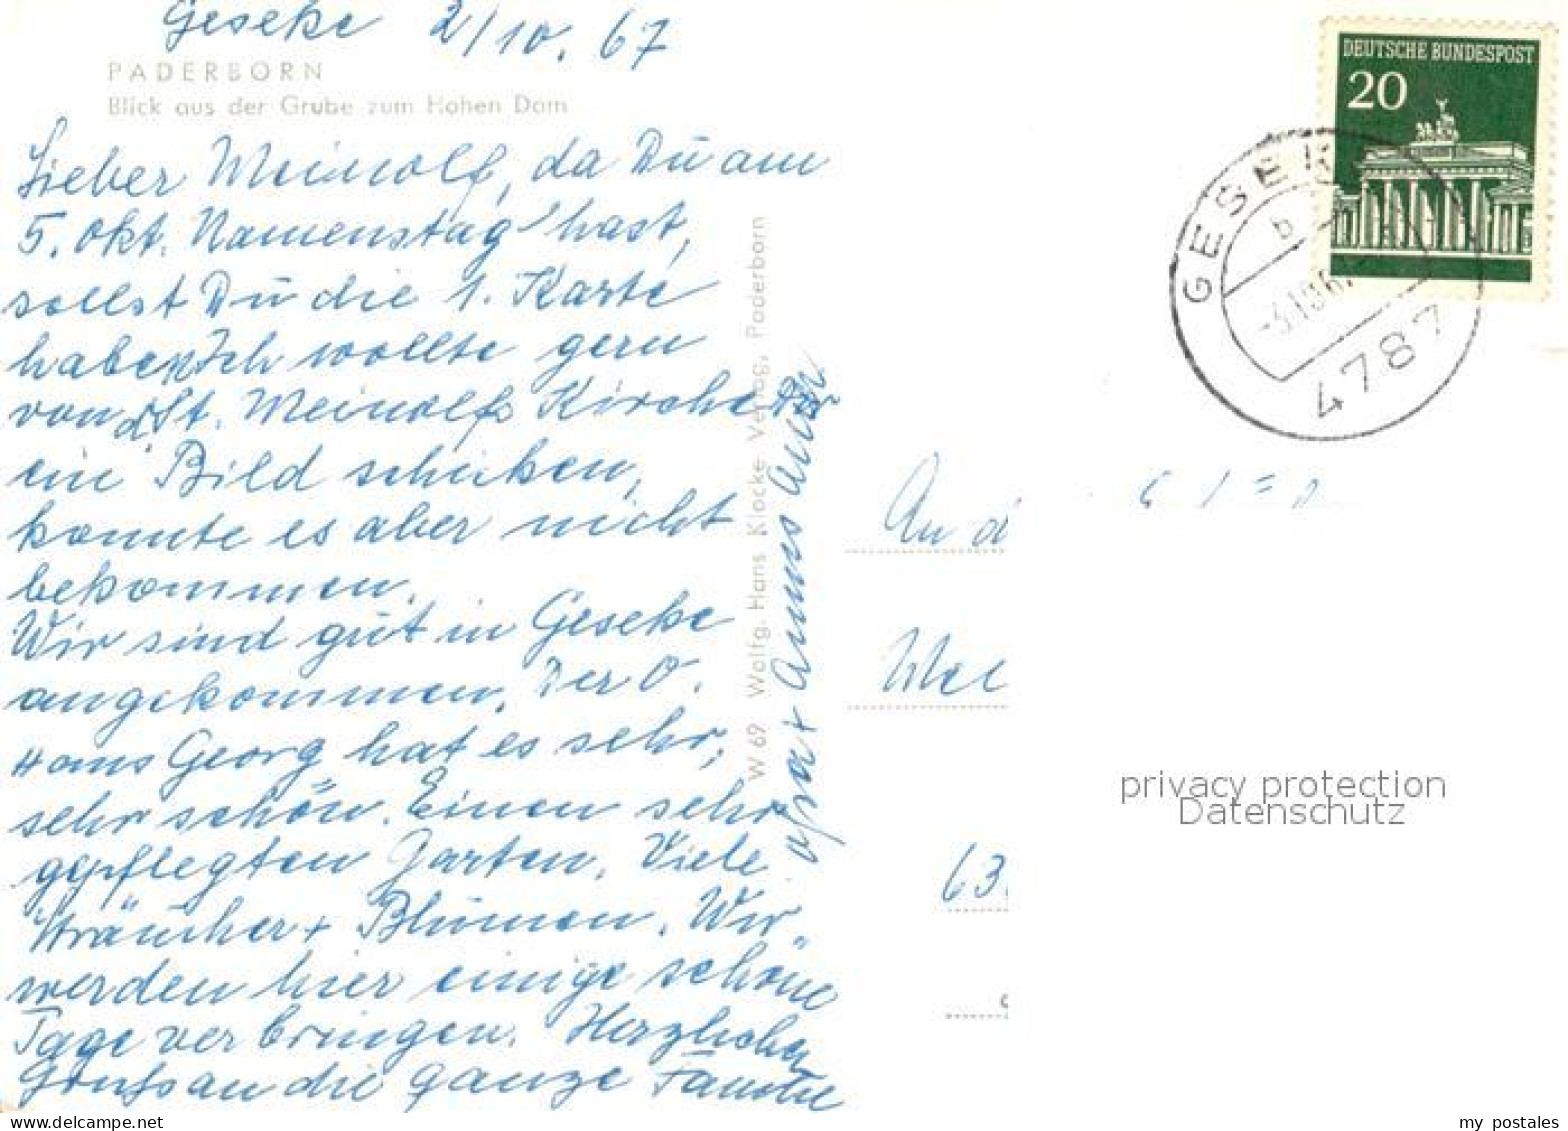 Geseke 2/10. 67
PADERBORN
Blick aus der Grube zum Hohen Dom
Lieber Meinolf, da Du am
5. Okt. Namenstag hast,
sollst Du die 1. Karte
haben. Ich wollte gern
von d. St. Meinolfs Kirche Dir
ein Bild schicken,
konnte es aber nicht
bekommen.
Wir sind gut in Geseke
angekommen. Der O.
Hans Georg hat es sehr,
sehr schön. Einen sehr
gepflegten Garten. Viele
Sträucher + Blumen. Wir
werden hier einige schöne
Tage verbringen. Herzlichen
Gruß an die ganze Familie
Opa + Anns
W 69 Wolfg. Hans Klocke Verlag, Paderborn
DEUTSCHE BUNDESPOST
20
GESEKE
b
-3.10.67
4787
An d
63
privacy protection
Datenschutz
my postales